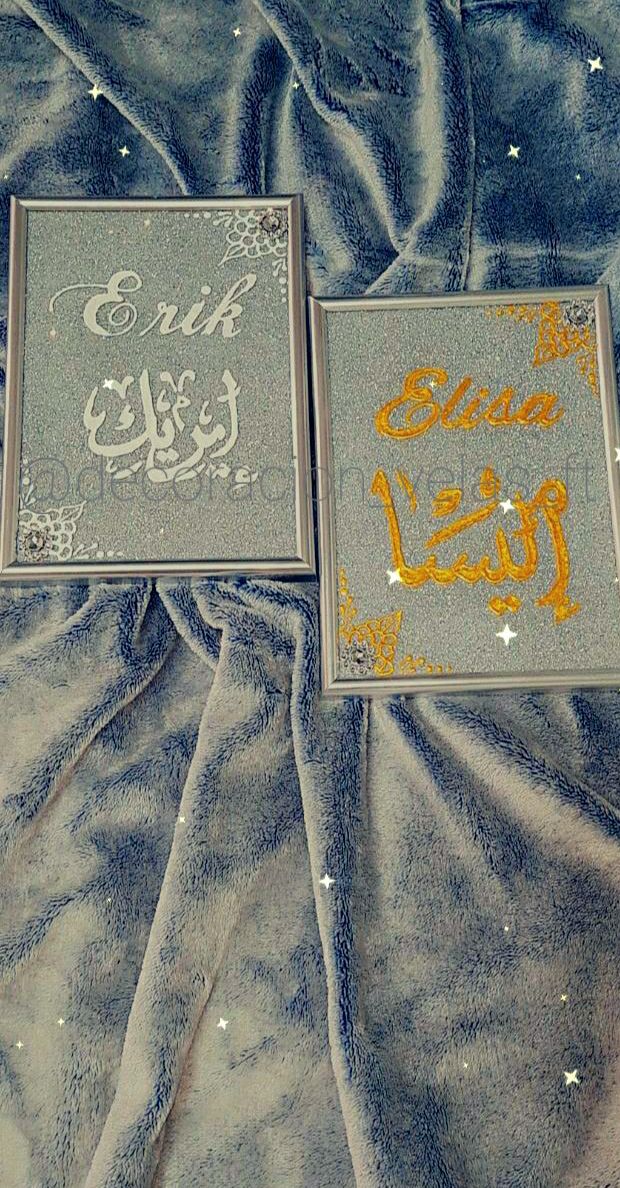 Erik
إيريك
Elisa
إليسا